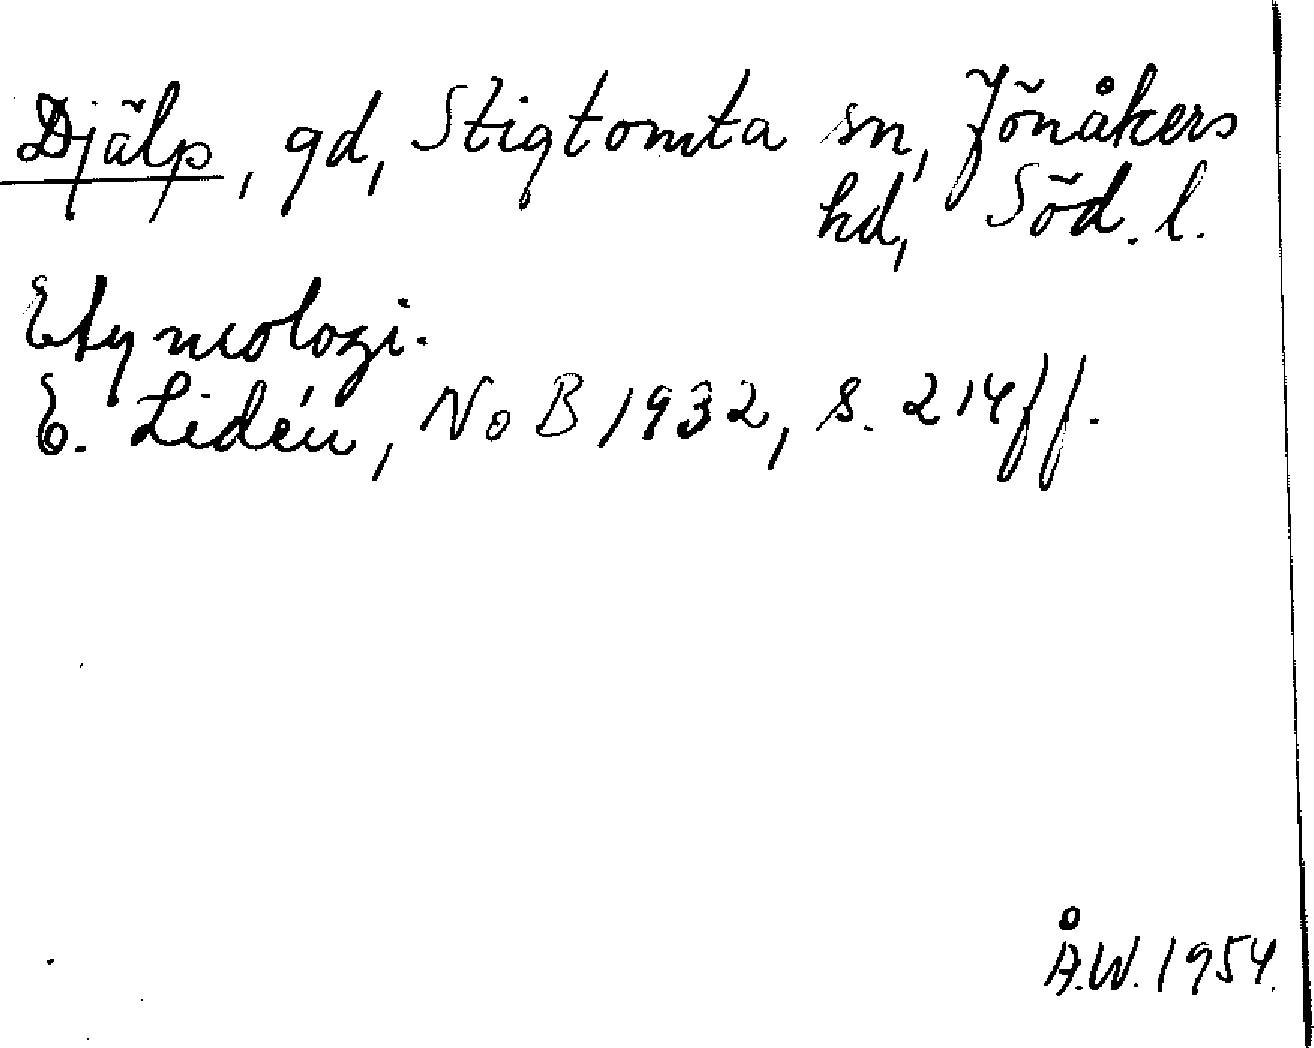 Djälp, gd, Stigtomta sn, Jönåkers
hd, Söd. l.
Etymologi.
E. Lidén, NoB 1932, s. 214ff.
Å.W. 1954.